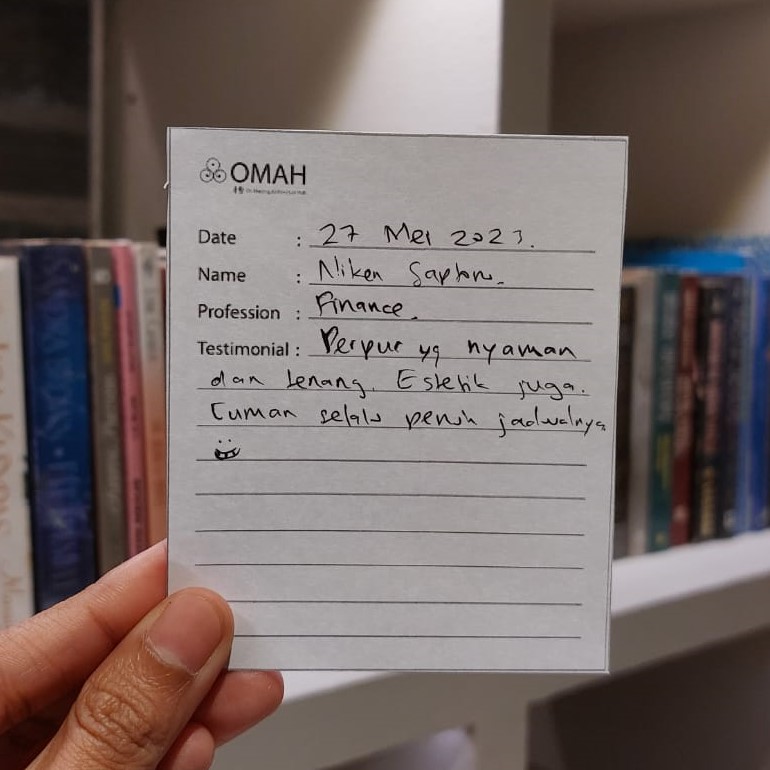 OMAH
Date : 27 Mei 2023.
Name : Niken
Profession : Finance.
Testimonial : Perpus yg nyaman
dan tenang. Estetik juga.
Cuman selalu penuh jadwalnya